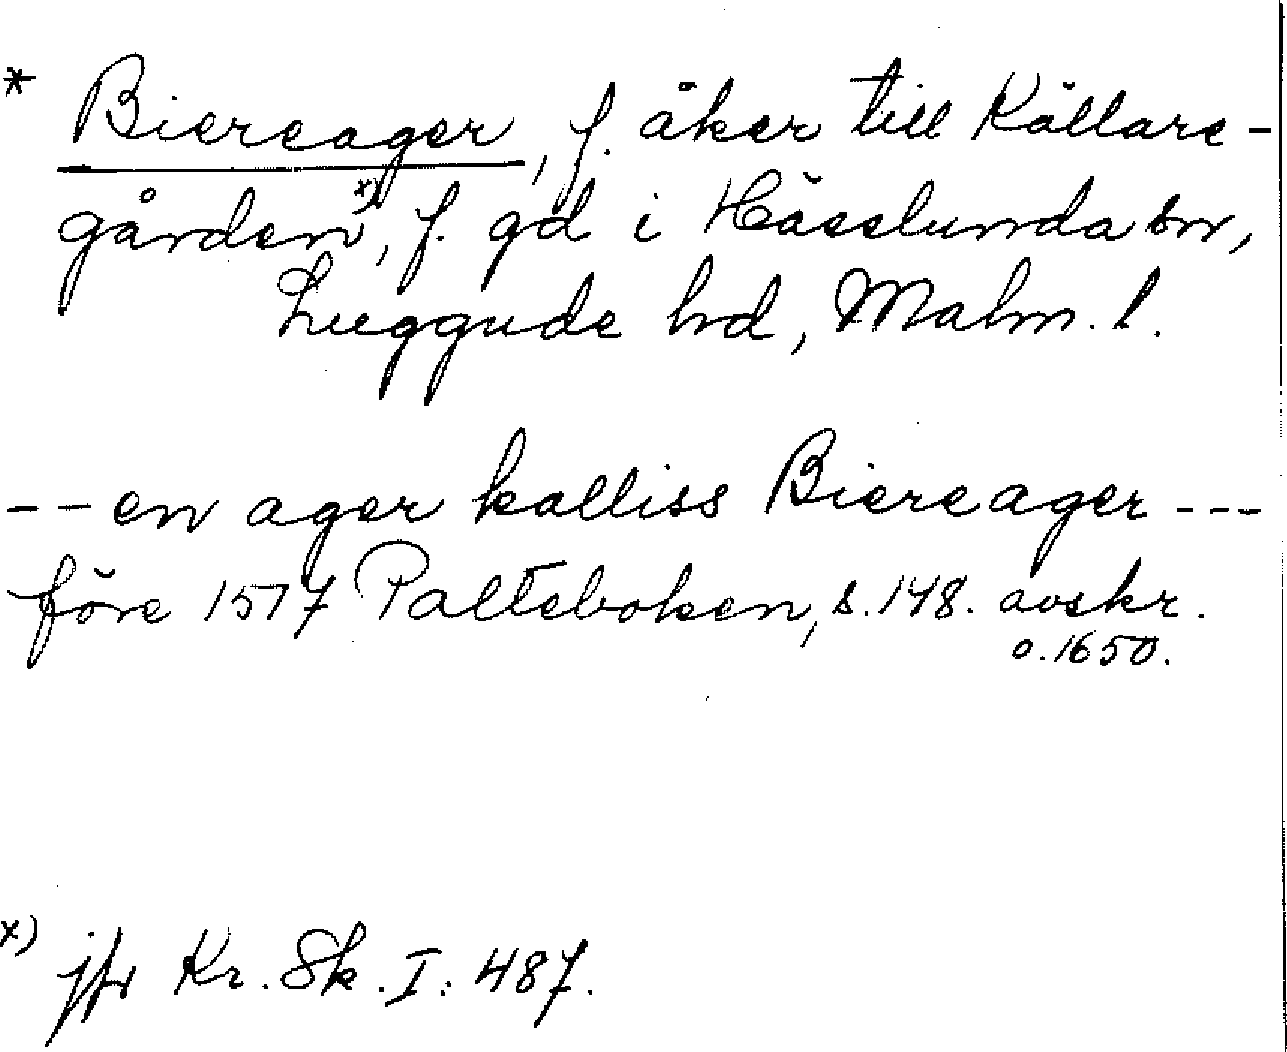 * Biereager, f. åker till Källare-
gården x), f. gd i Hässlunda sn,
Luggude hd, Malm. l.
-- en ager kalliss Biereager ---
före 1517 Palteboken, s. 148. avskr.
o. 1650.
x) jfr Kr. Sk. I: 487.